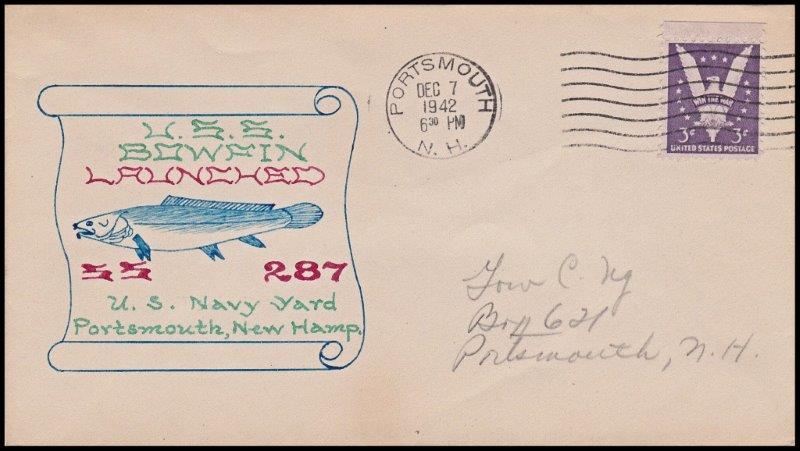 U.S.S.
BOWFIN
LAUNCHED
SS 287
U. S. Navy Yard
Portsmouth, New Hamp.
PORTSMOUTH
DEC 7
1942
6 30 PM
N. H.
WIN THE WAR
3¢ 3¢
UNITED STATES POSTAGE
C. Ng
Box 621
Portsmouth, N. H.